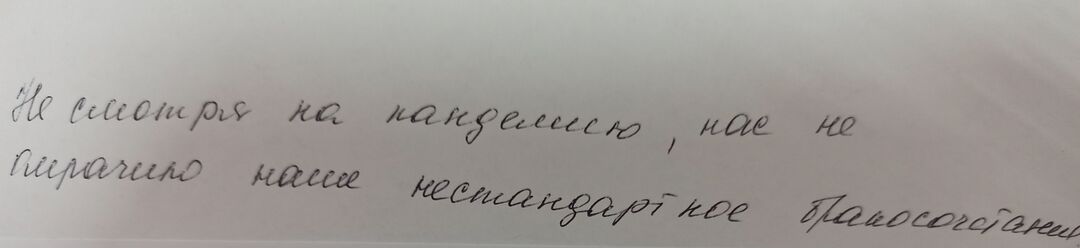 Не смотря на пандемию, нас не
омрачило наше нестандартное бракосочетание